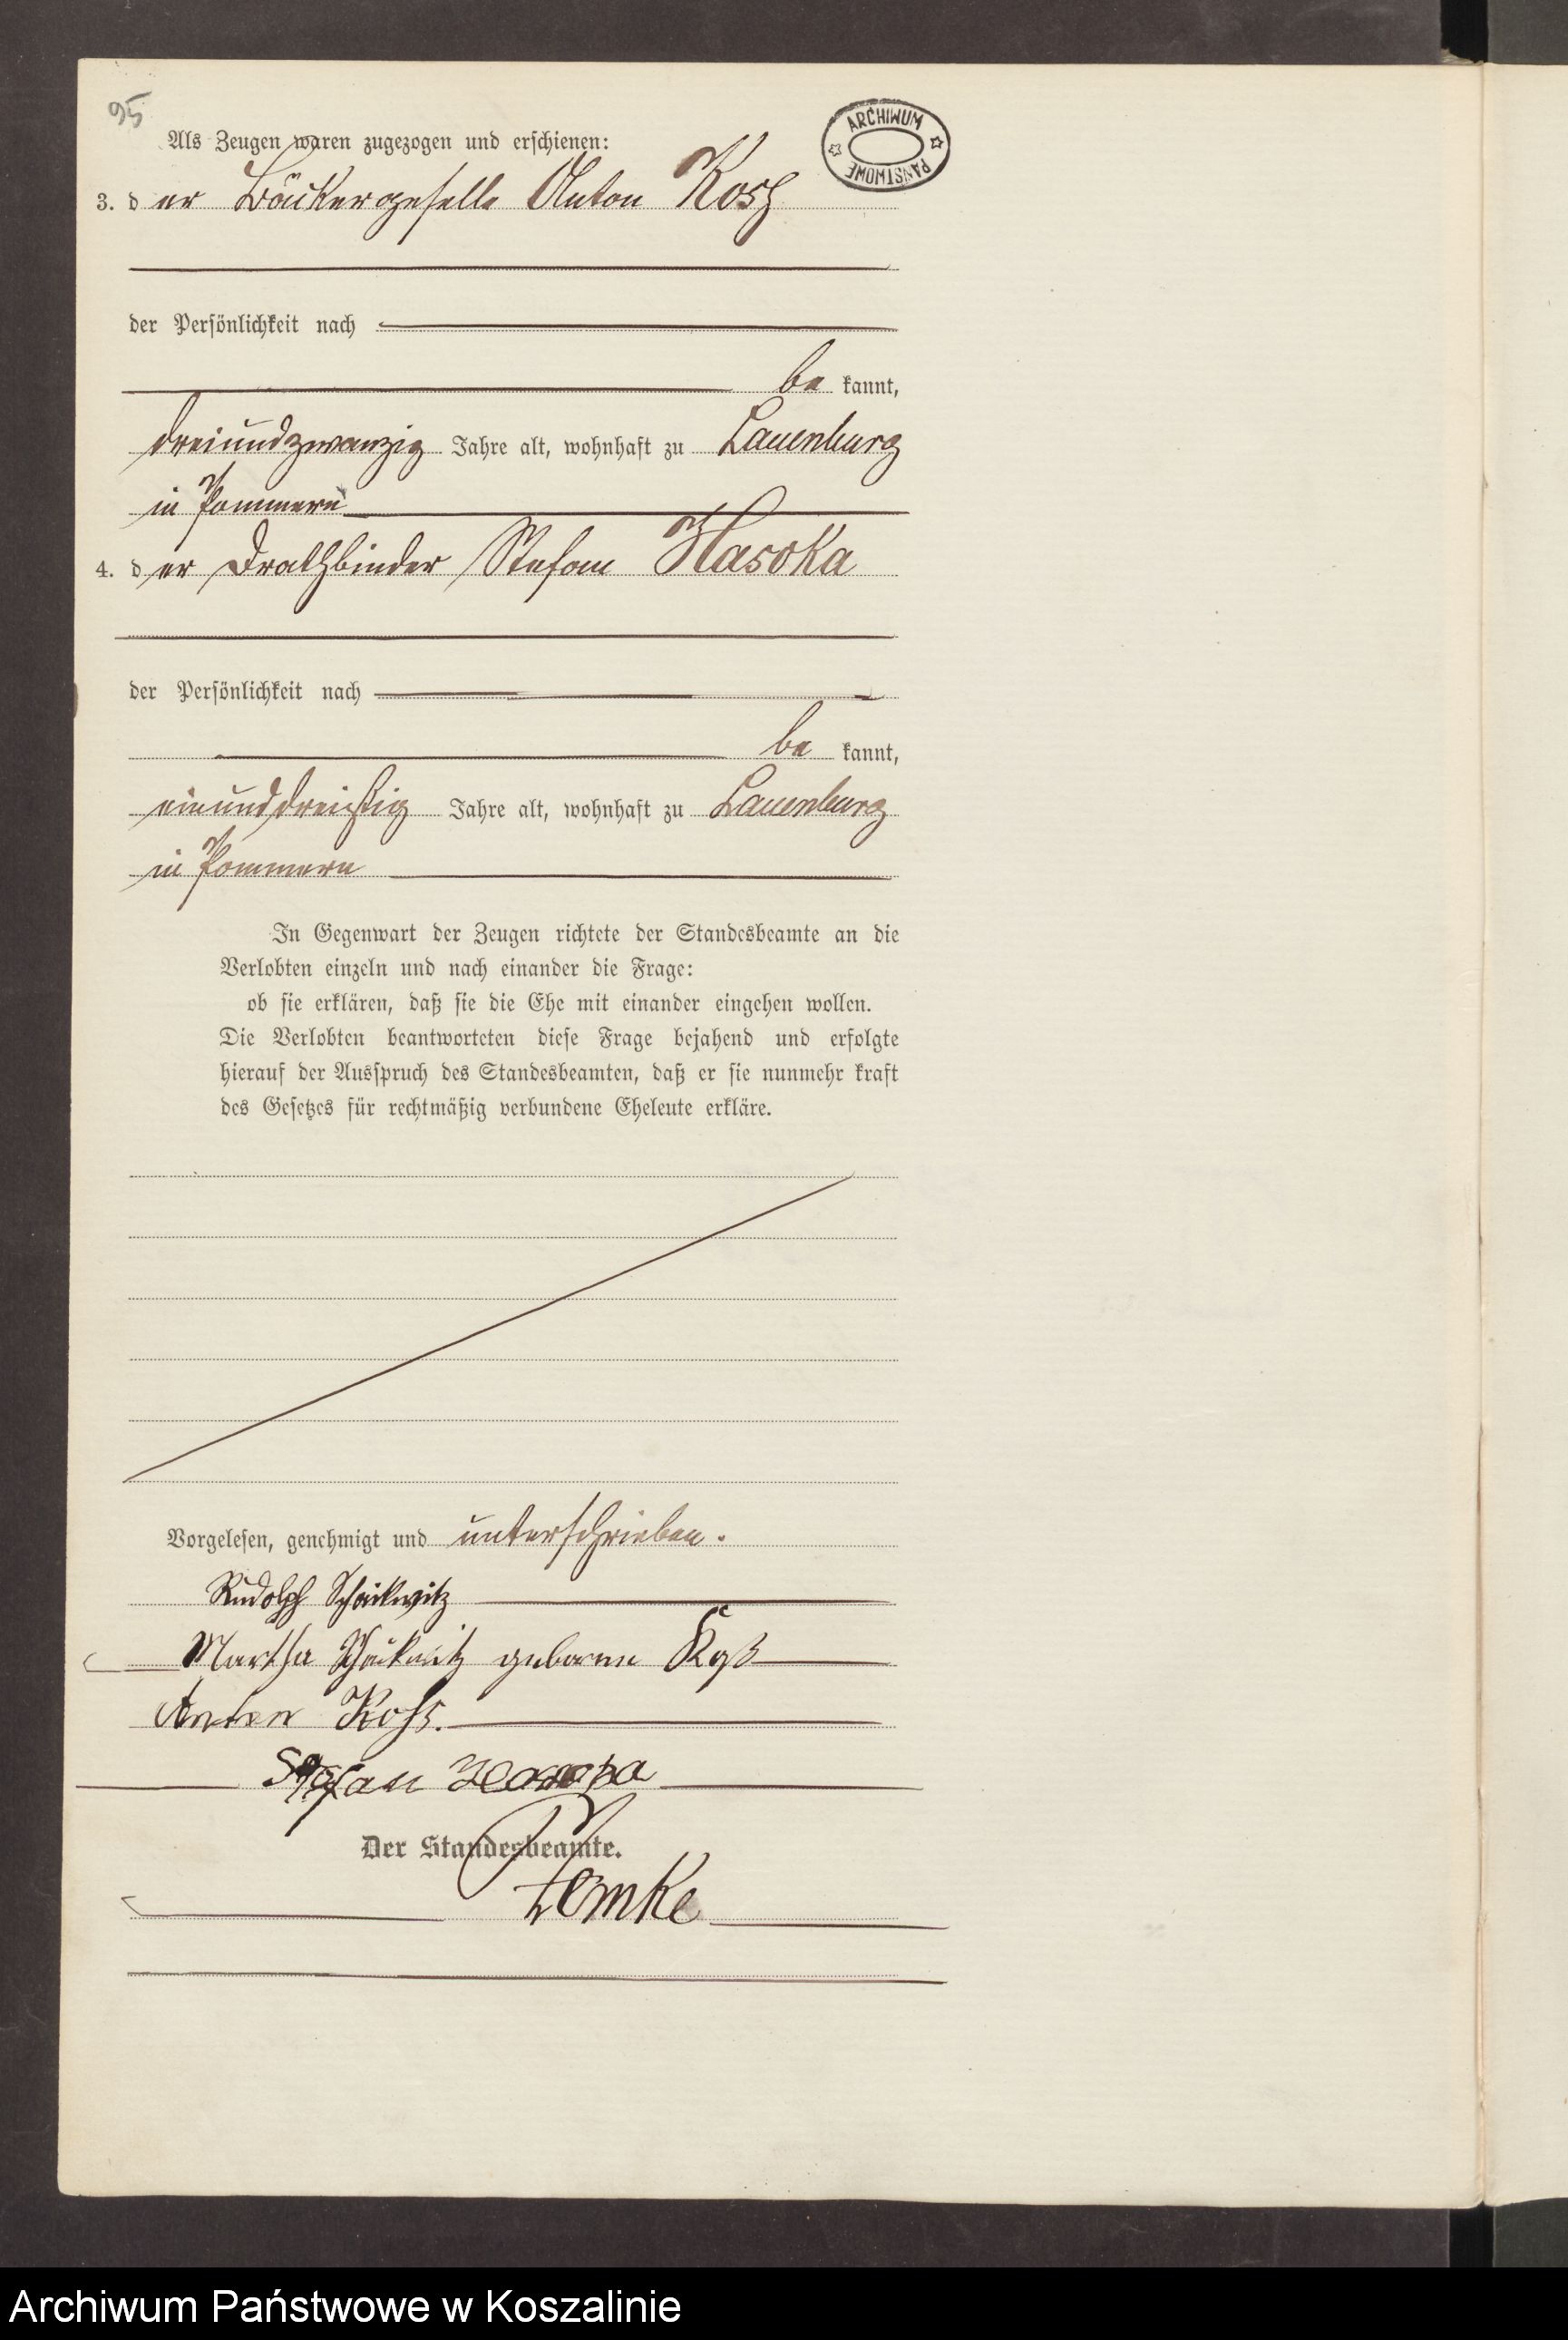 95
ARCHIWUM PAŃSTWOWE
Als Zeugen waren zugezogen und erschienen:
3. d er Bäckergeselle Anton Koss
der Persönlichkeit nach
be kannt,
dreiundzwanzig Jahre alt, wohnhaft zu Lauenburg
in Pommern
4. d er Drathbinder Stefan Hasoka
der Persönlichkeit nach
be kannt,
einunddreißig Jahre alt, wohnhaft zu Lauenburg
in Pommern
In Gegenwart der Zeugen richtete der Standesbeamte an die
Verlobten einzeln und nach einander die Frage:
ob sie erklären, daß sie die Ehe mit einander eingehen wollen.
Die Verlobten beantworteten diese Frage bejahend und erfolgte
hierauf der Ausspruch des Standesbeamten, daß er sie nunmehr kraft
des Gesetzes für rechtmäßig verbundene Eheleute erkläre.
Vorgelesen, genehmigt und unterschrieben.
Rudolph
Martha geborene Koß
Anton Koss.
Stefan
Der Standesbeamte.
Zemke
Archiwum Państwowe w Koszalinie